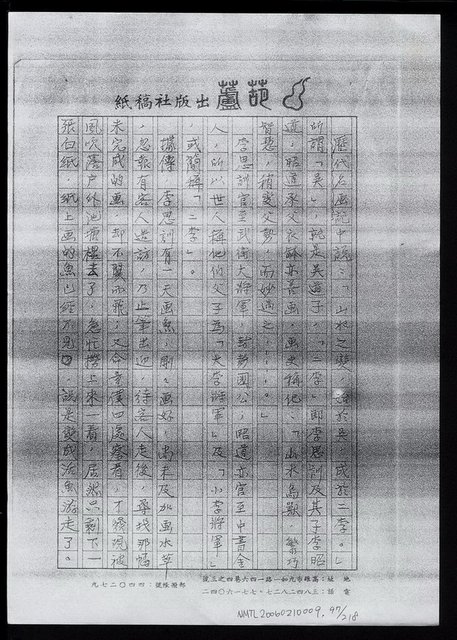 葫蘆出版社稿紙
歷代名画記中說：「山水之變，始於吳，成於二李。」
所謂「吳」，就是吳道子，「二李」即李思訓及其子李昭
道，昭道承父衣缽亦善画，画史稱他：「山水鳥獸，繁巧
智慧，稍變父勢，而妙過之……。」
李思訓官至武衛大將軍，封彭國公，昭道亦官至中書舍
人，所以世人稱他們父子為「大李將軍」及「小李將軍」
，或簡稱「二李」。
據傳，李思訓有一天画魚，剛剛画好，尚未及加画水草
，忽報有客人造訪，乃止筆出迎，待客人走後，尋找那幅
未完成的画，却不翼而飛，又令童僕四處察看，才發現被
風吹落戶外池塘裡去了，急忙撈上來一看，居然只剩下一
張白紙，紙上画的魚已經不見，說是變成活魚游走了。
地址：高雄市九如一路一四六巷四之三號
電話：三八四二八二．七七一六〇四二
郵撥帳號：四四〇二七九
NMTL20060210009. 97/218